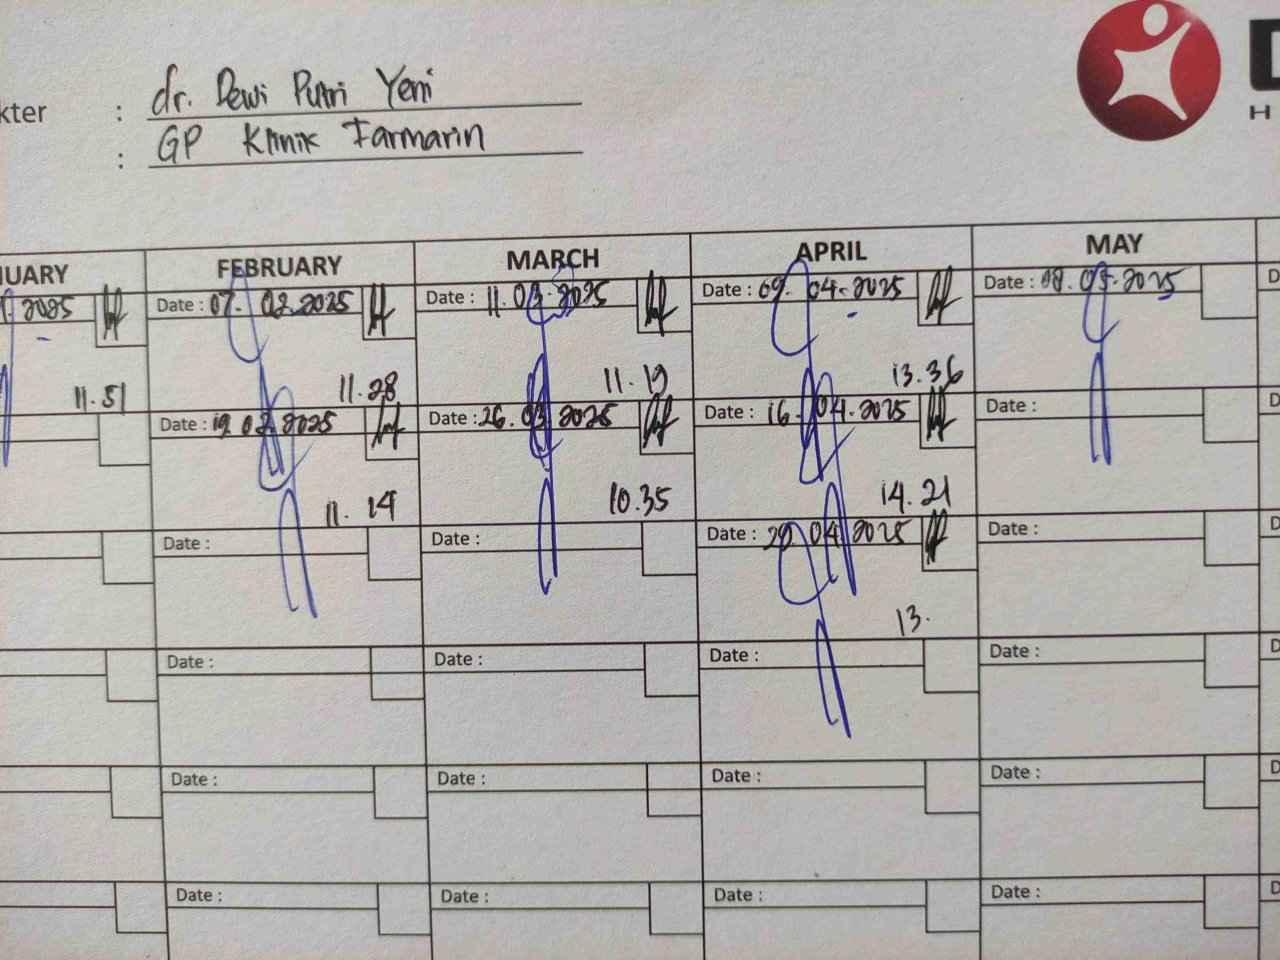 kter : dr. Dewi Putri Yeni
: GP Klinik Farmarin
D
H
UARY FEBRUARY MARCH APRIL MAY
2025 Date : 07. 02.2025 Date : 11.03.2025 Date : 09. 04.2025 Date : 08.05.2025 D
11.51 11.28 11.19 13.36
Date : 19 02 2025 Date : 26.03 2025 Date : 16.04.2025 Date : D
11. 14 10.35 14.21
Date : Date : Date : 04 2025 Date : D
13.
Date : Date : Date : Date : D
Date : Date : Date : Date : D
Date : Date : Date : Date : D